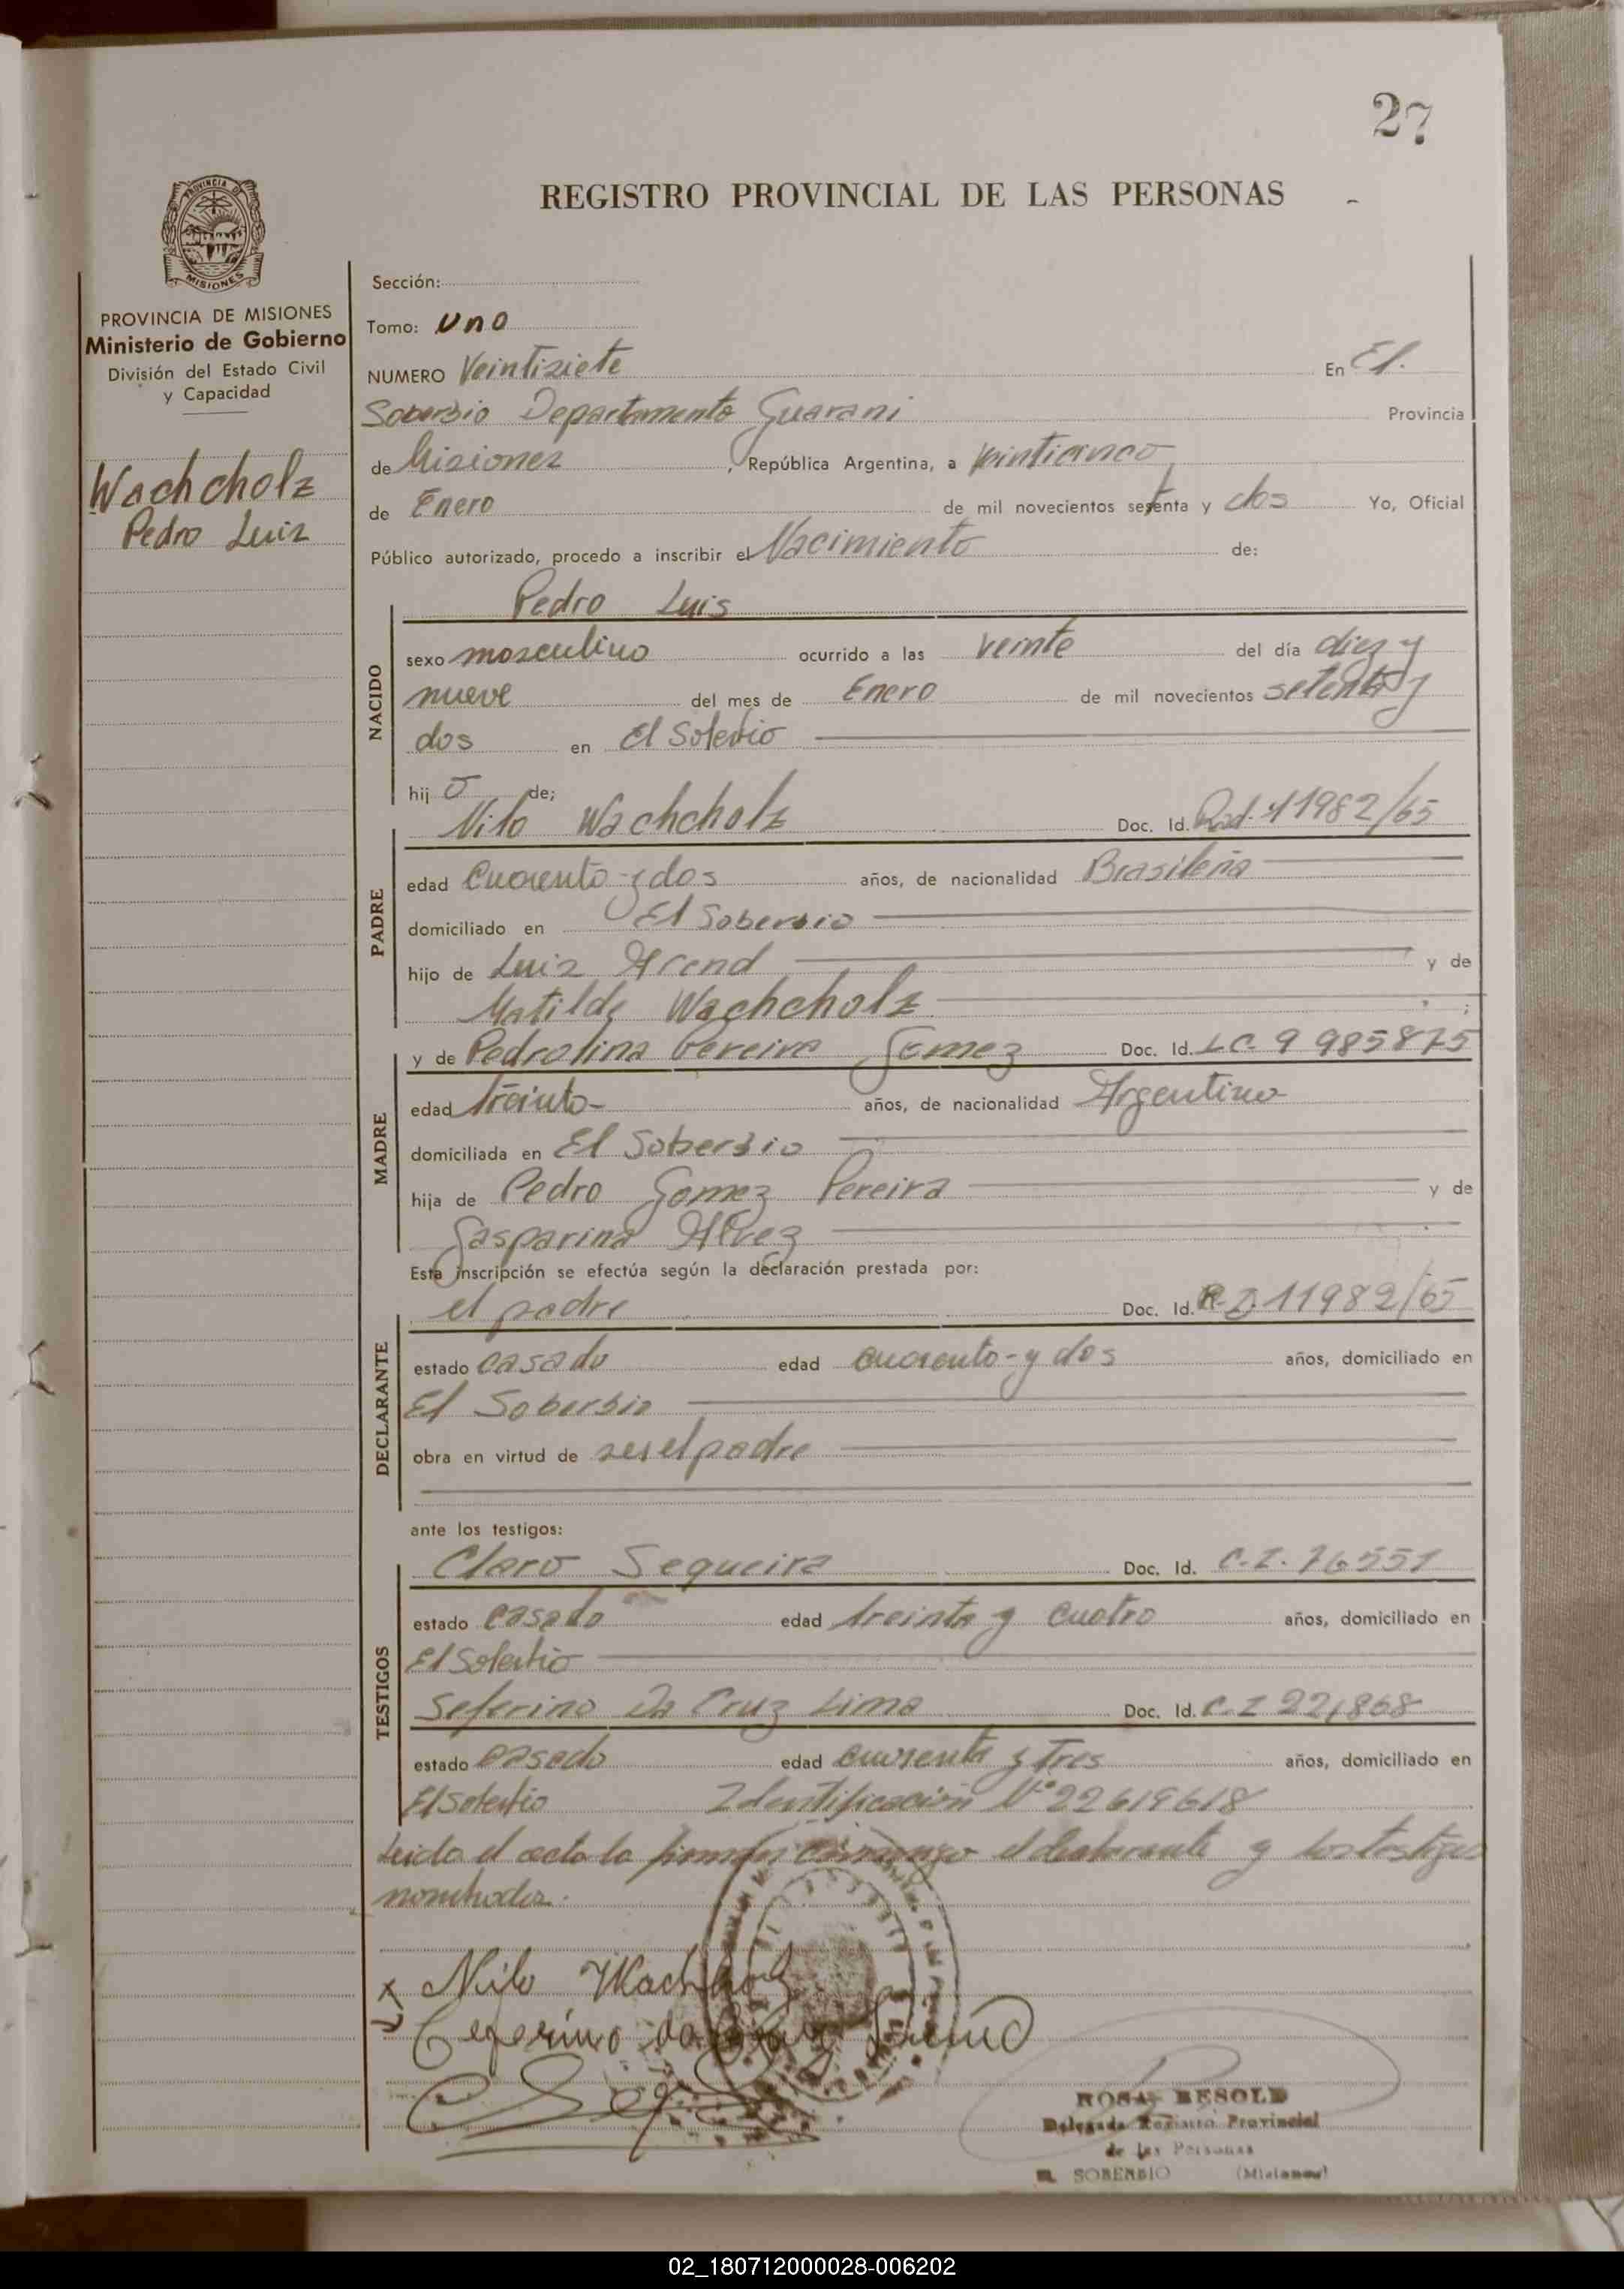 27
REGISTRO PROVINCIAL DE LAS PERSONAS
PROVINCIA DE
MISIONES
PROVINCIA DE MISIONES
Ministerio de Gobierno
División del Estado Civil
y Capacidad
Wachcholz
Pedro Luis
Sección:
Tomo: Uno
NUMERO Veintisiete En El.
Soberbio Departamento Guarani Provincia
de Misiones, República Argentina, a veinticinco
de Enero de mil novecientos sesenta y dos Yo, Oficial
Público autorizado, procedo a inscribir el Nacimiento de:
Pedro Luis
NACIDO
sexo masculino ocurrido a las veinte del día diez y
nueve del mes de Enero de mil novecientos setenta y
dos en El Soberbio
hij o de;
Nilo Wachcholz Doc. Id. Rad. 11982/65
PADRE
edad cuarenta y dos años, de nacionalidad Brasileña
domiciliado en El Soberbio
hijo de Luis Arend y de
Matilde Wachcholz ;
y de Pedrolina Pereira Gomez Doc. Id. LC. 9 985875
MADRE
edad treinta años, de nacionalidad Argentina
domiciliada en El Soberbio
hija de Pedro Gomez Pereira y de
Gasparina Alvez
Esta inscripción se efectúa según la declaración prestada por:
el padre Doc. Id. R.D. 11982/65
DECLARANTE
estado casado edad cuarenta y dos años, domiciliado en
El Soberbio
obra en virtud de ser el padre
ante los testigos:
Claro Sequeira Doc. Id. C.I. 76551
TESTIGOS
estado casado edad treinta y cuatro años, domiciliado en
El Soberbio
Seferino Da Cruz Lima Doc. Id. C.I 221868
estado casado edad cuarenta y tres años, domiciliado en
El Soberbio Identificación Nº 22619618
Leida el acta la firman conmigo el declarante y los testigos
nombrados.
x Nilo Wachholz
Ceferino da Cruz Lima
ROSA BESOLD
Delegada Registro Provincial
de las Personas
EL SOBERBIO (Misiones)
02_180712000028-006202